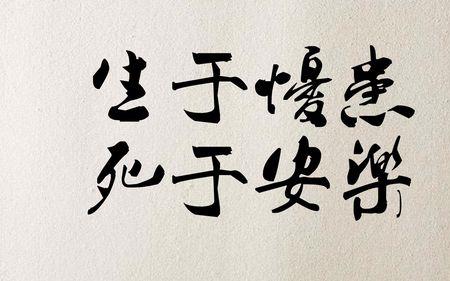 生于慢患
死于安樂